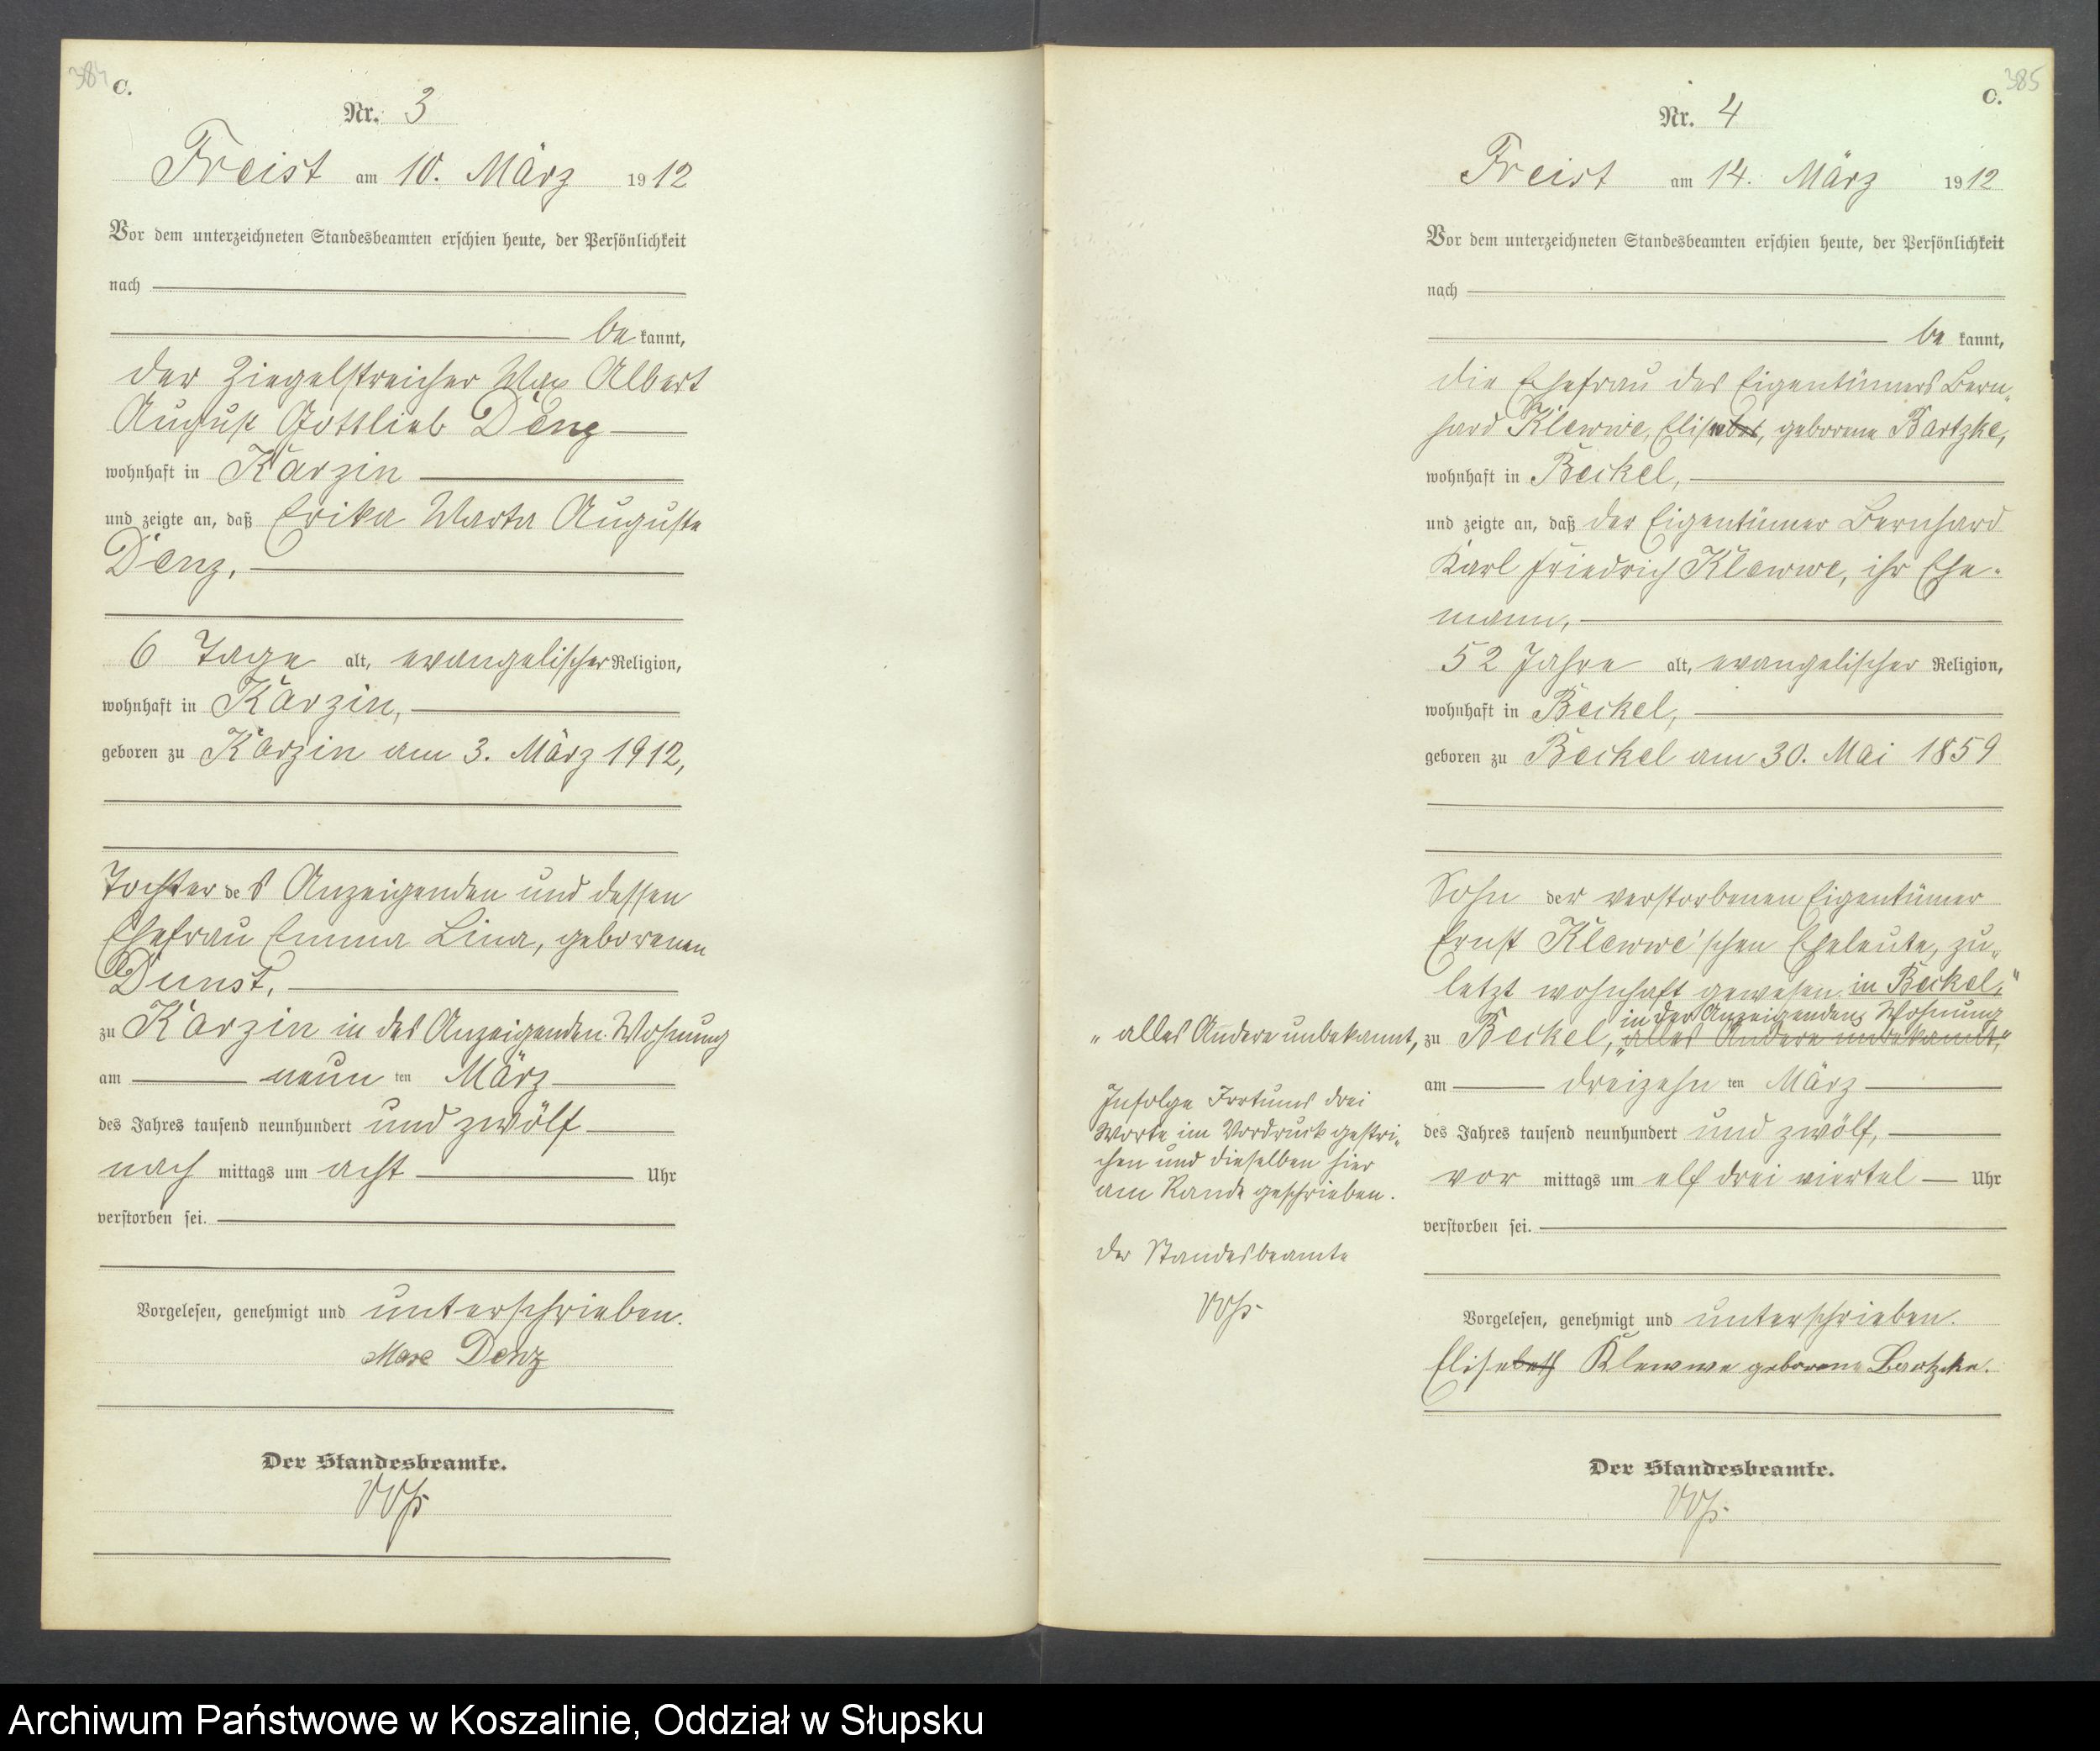 384
C.
Nr. 3
Freist am 10. März 1912
Vor dem unterzeichneten Standesbeamten erschien heute, der Persönlichkeit
nach
be kannt,
der Ziegelstreicher Max Albert
August Gottlieb Denz
wohnhaft in Karzin
und zeigte an, daß Erika Marta Auguste
Denz,
6 Tage alt, evangelischer Religion,
wohnhaft in Karzin,
geboren zu Karzin am 3. März 1912,
Tochter des Anzeigenden und dessen
Ehefrau Emma Lina, geborenen
Dunst,
zu Karzin in des Anzeigenden Wohnung
am neun ten März
des Jahres tausend neunhundert und zwölf
nach mittags um acht Uhr
verstorben sei.
Vorgelesen, genehmigt und unterschrieben.
Max Denz
Der Standesbeamte.
385
C.
Nr. 4
Freist am 14. März 1912
Vor dem unterzeichneten Standesbeamten erschien heute, der Persönlichkeit
nach
be kannt,
die Ehefrau des Eigentümers Bern„
hard Klewwe, Elisabet, geborene Bartzke,
wohnhaft in Beckel,
und zeigte an, daß der Eigentümer Bernhard
Karl Friedrich Klewwe, ihr Ehe-
mann,
52 Jahre alt, evangelischer Religion,
wohnhaft in Beckel,
geboren zu Beckel am 30. Mai 1859
Sohn der verstorbenen Eigentümer
Ernst Klewwe'schen Eheleute, zu„
letzt wohnhaft gewesen in Beckel,"
in der Anzeigenden Wohnung
zu Beckel, „alles Andere unbekannt,"
am dreizehn ten März
des Jahres tausend neunhundert und zwölf,
vor mittags um elf drei viertel Uhr
verstorben sei.
Vorgelesen, genehmigt und unterschrieben.
Elisebeth Klewwe geborene Bartzke.
Der Standesbeamte.
„ alles Andere unbekannt,
Infolge Irrtums drei
Worte im Vordruck gestri„
chen und dieselben hier
am Rande geschrieben.
Der Standesbeamte
Archiwum Państwowe w Koszalinie, Oddział w Słupsku